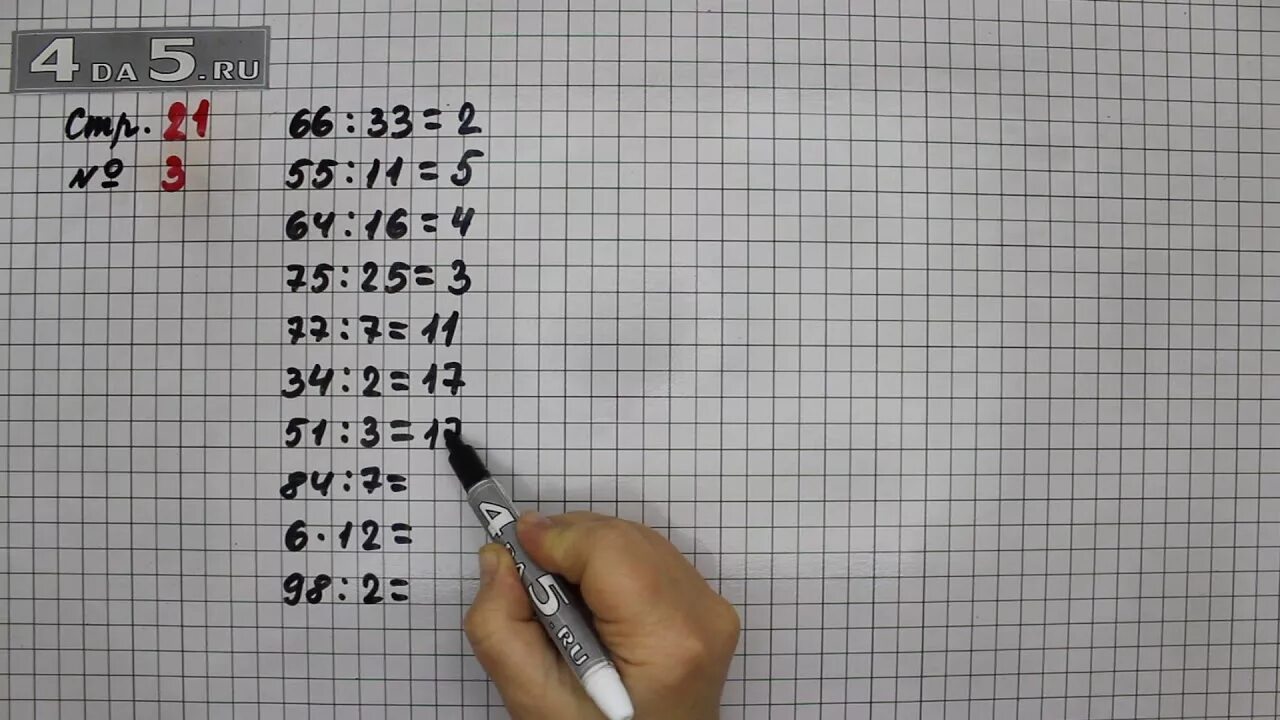 4 DA 5.RU
Стр. 21
№ 3
66 : 33 = 2
55 : 11 = 5
64 : 16 = 4
75 : 25 = 3
77 : 7 = 11
34 : 2 = 17
51 : 3 = 17
84 : 7 =
6 · 12 =
98 : 2 =
4 DA 5.RU